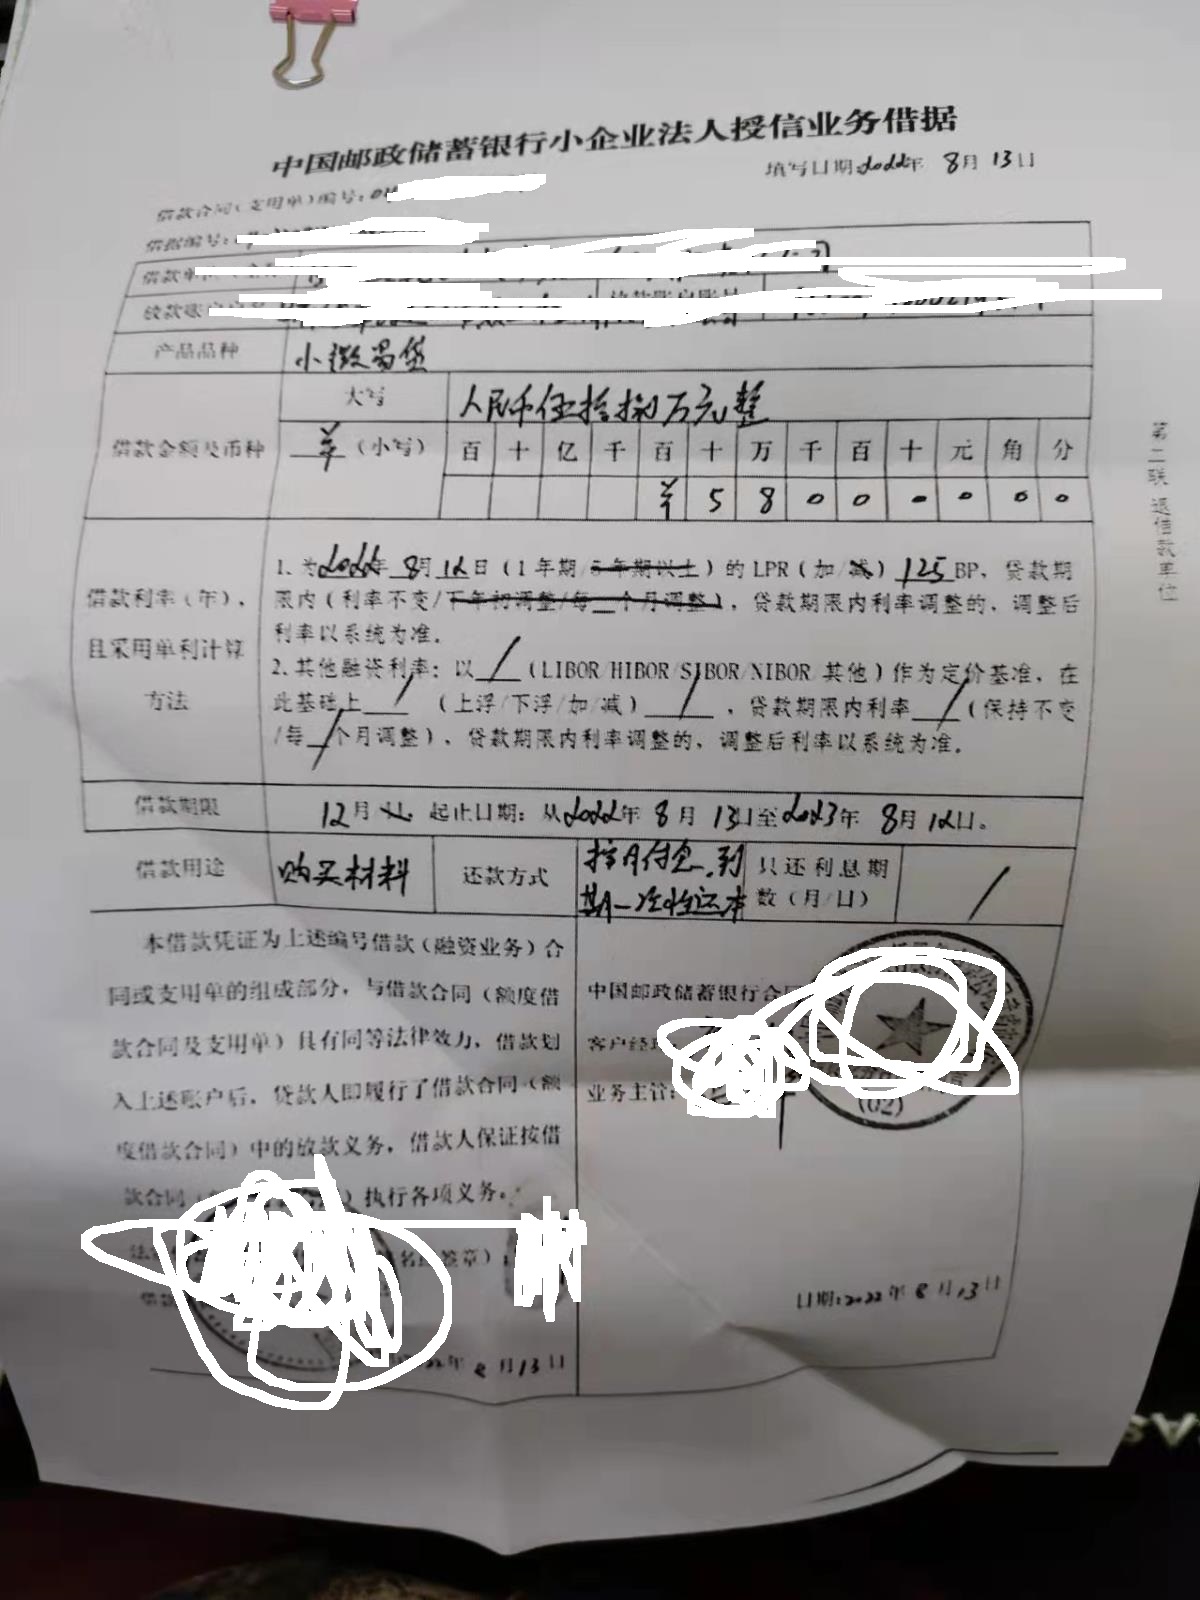 中国邮政储蓄银行小企业法人授信业务借据
填写日期:2022年 8月 13日
借款合同(支用单)编号:
借据编号:
产品品种 小微易贷
借款金额及币种 大写 人民币伍拾捌万元整
羊 (小写) 百 十 亿 千 百 十 万 千 百 十 元 角 分
¥ 5 8 0 0 0 0 0 0
借款利率(年),且采用单利计算方法
1.为2022年 8月12日(1年期/5年期以上)的LPR(加/减)125BP,贷款期
限内(利率不变/下年初调整/每__个月调整),贷款期限内利率调整的,调整后
利率以系统为准.
2.其他融资利率:以 / (LIBOR/HIBOR/SIBOR/NIBOR/其他)作为定价基准,在
此基础上 / (上浮/下浮/加/减) / ,贷款期限内利率 / (保持不变
/每 / 个月调整),贷款期限内利率调整的,调整后利率以系统为准.
借款期限 12月 起止日期:从2022年 8月 13日至2023年 8月12日。
借款用途 购买材料 还款方式 按月付息,到期一次性还本 只还利息期数(月/日) /
本借款凭证为上述编号借款(融资业务)合
同或支用单的组成部分,与借款合同(额度借
款合同及支用单)具有同等法律效力,借款划
入上述账户后,贷款人即履行了借款合同(额
度借款合同)中的放款义务,借款人保证按借
款合同( )执行各项义务。
签章):
年 8月13日
中国邮政储蓄银行合同
客户经理
业务主管:
(02)
日期:2022年8月13日
第二联 退借款单位